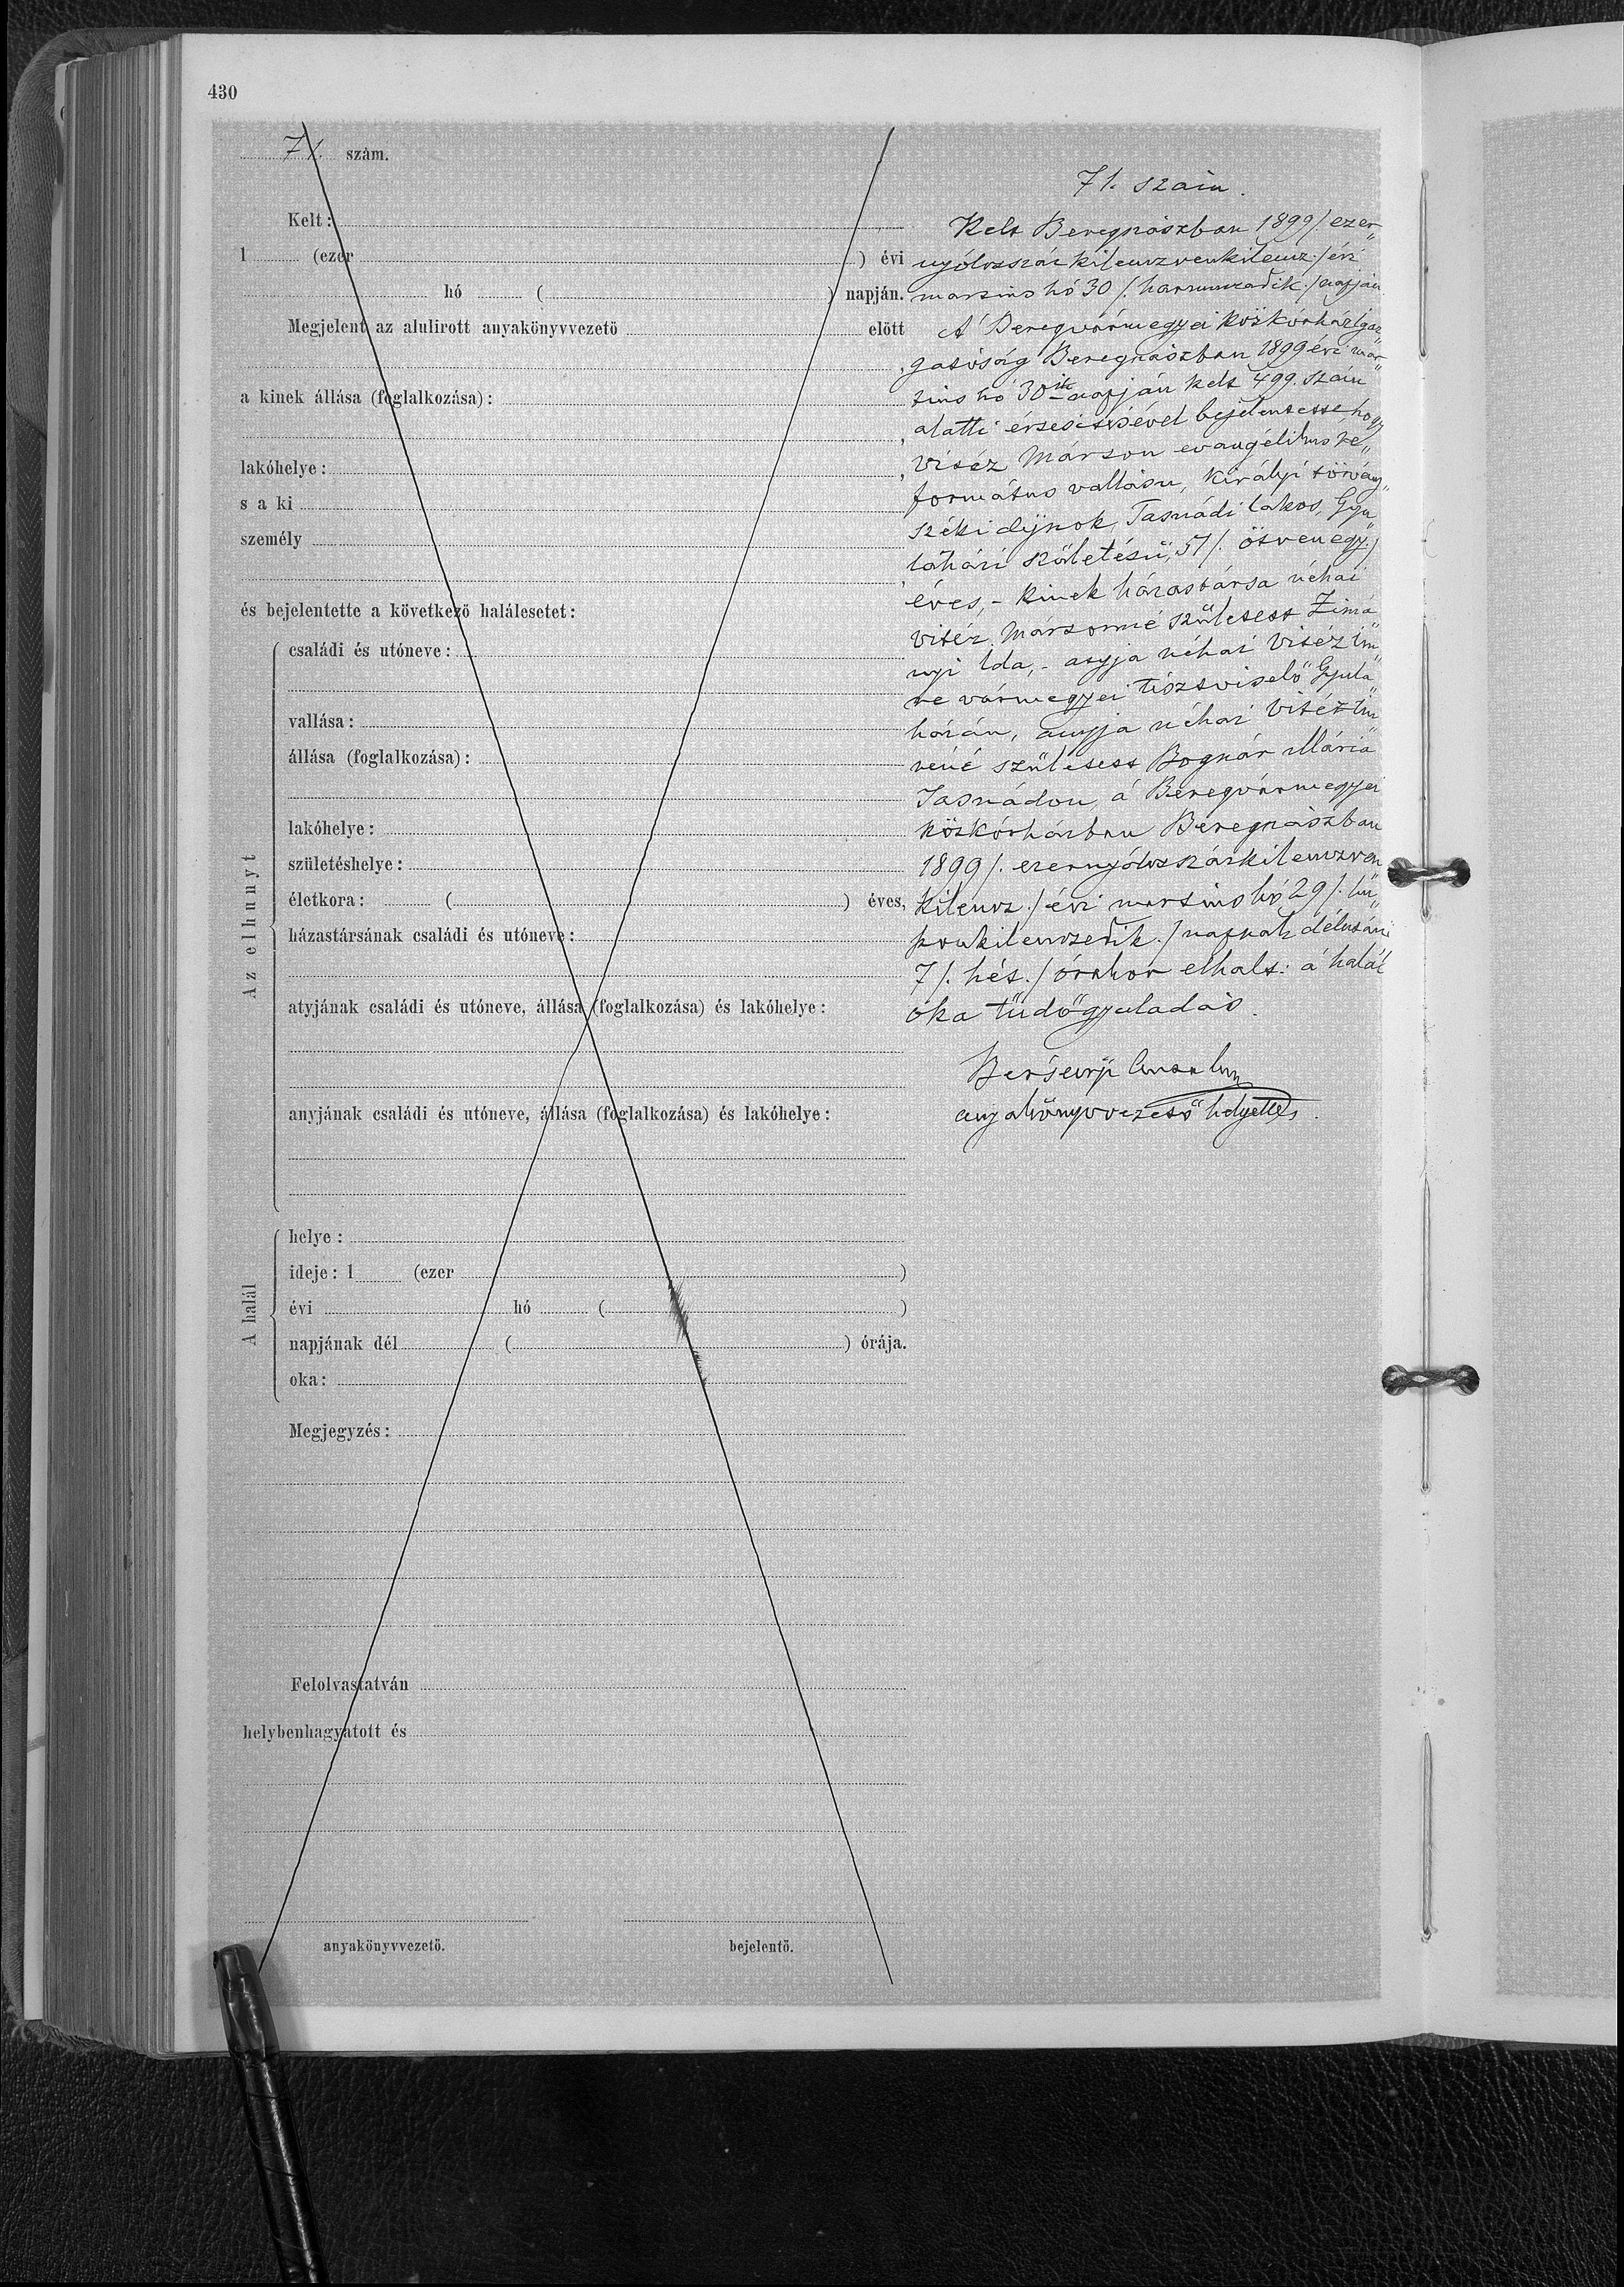 430
71. szám.
Kelt:
1 (ezer ) évi
hó ( ) napján.
Megjelent az alulirott anyakönyvvezető előtt
,
a kinek állása (foglalkozása):
,
lakóhelye: ,
s a ki
személy
,
és bejelentette a következő halálesetet:
Az elhunyt
családi és utóneve:
vallása:
állása (foglalkozása):
lakóhelye:
születéshelye:
életkora: ( ) éves,
házastársának családi és utóneve:
atyjának családi és utóneve, állása (foglalkozása) és lakóhelye:
anyjának családi és utóneve, állása (foglalkozása) és lakóhelye:
A halál
helye:
ideje: 1 (ezer )
évi hó ( )
napjának dél ( ) órája.
oka:
Megjegyzés:
Felolvastatván
helybenhagyatott és
anyakönyvvezető. bejelentő.
71. szám.
Kelt Beregszászban 1899 /. ezer„
nyólczszáz kilenczvenkilencz ./ évi
martius hó 30 /. harminczadik ./ napján
A' Beregvármegyei közkórház igaz„
gatóság Beregszászban 1899 évi már„
tius hó 30ik napján kelt 499. szám
alatti értesitésével bejelentette, hogy
Vitéz Márton evangélikus re„
formátus vallásu, királyi törvény„
széki dijnok, Tasnádi lakos, Gyu„
laházi születésü, 51 /. ötvenegy ./
éves, - kinek házastársa néhai
Vitéz Mártonné született Zimá„
nyi Ida, - atyja néhai Vitéz Im„
re vármegyei tisztviselő Gyula„
házán, anyja néhai Vitéz Im„
réné született Bognár Mária
Tasnádon, á Beregvármegyei
közkórházban Beregszászban
1899 /. ezernyólczszázkilenczven
kilencz ./ évi martius hó 29 /. hu„
szonkilenczedik ./ napnak délutáni
7 /. hét. / órakor elhalt: á halál
oka tüdőgyuladás.
anyakönyvvezető helyettes.